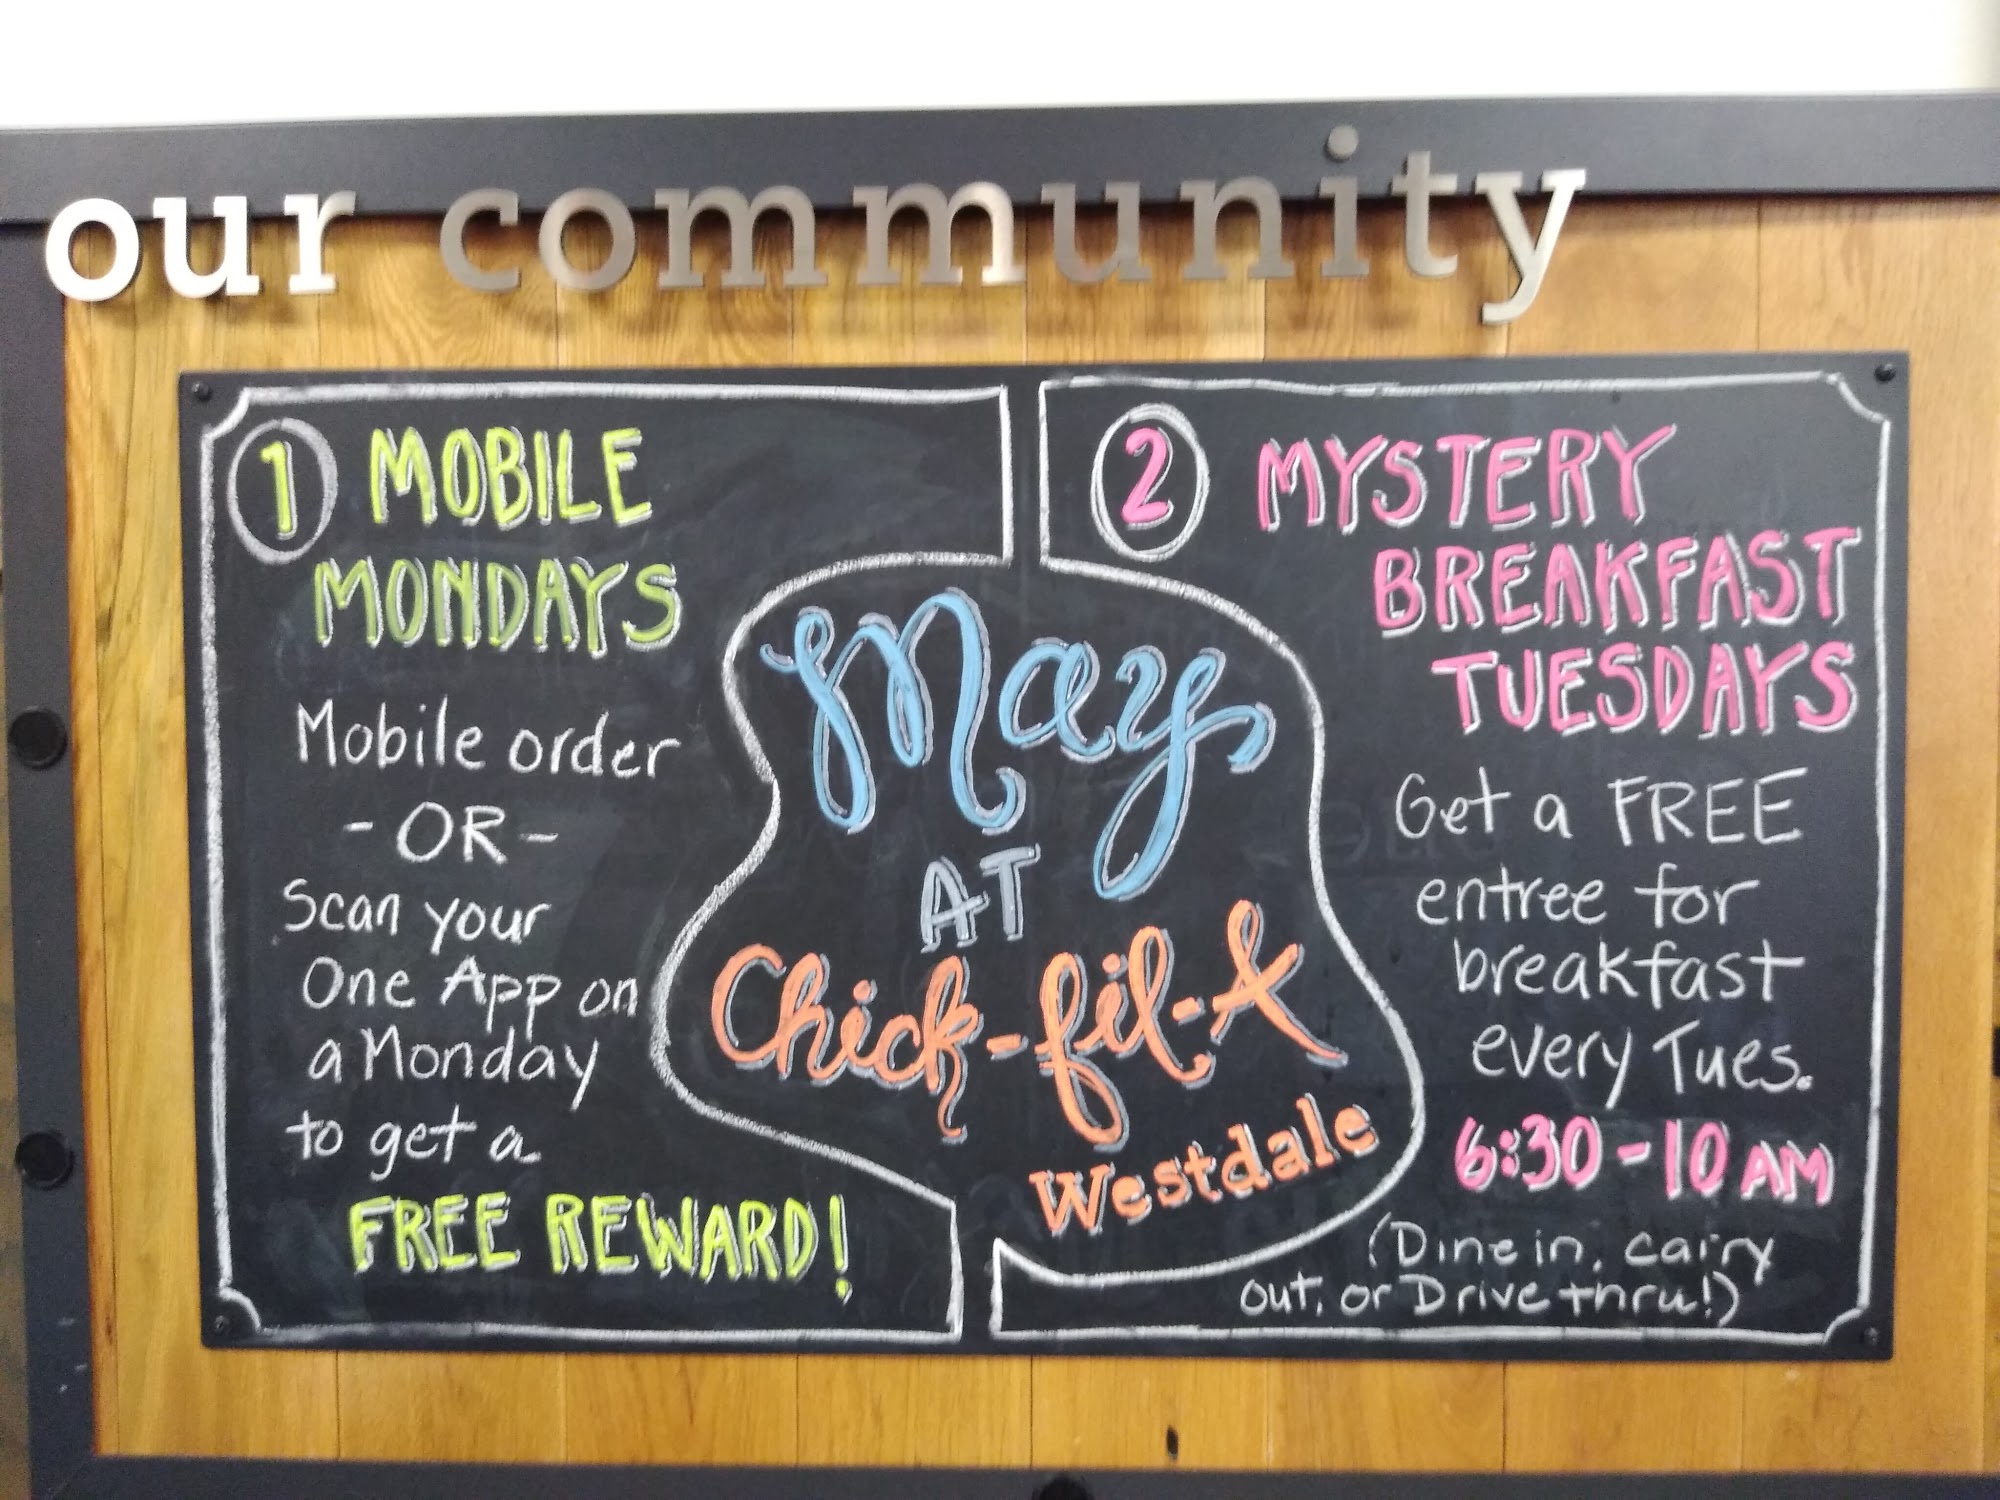 our community
1 MOBILE
MONDAYS
Mobile order
- OR -
Scan your
One App on
a Monday
to get a
FREE REWARD!
May
AT
Chick-fil-A
Westdale
2 MYSTERY
BREAKFAST
TUESDAYS
Get a FREE
entree for
breakfast
every Tues.
6:30-10 AM
(Dine in, carry
out, or Drive thru!)